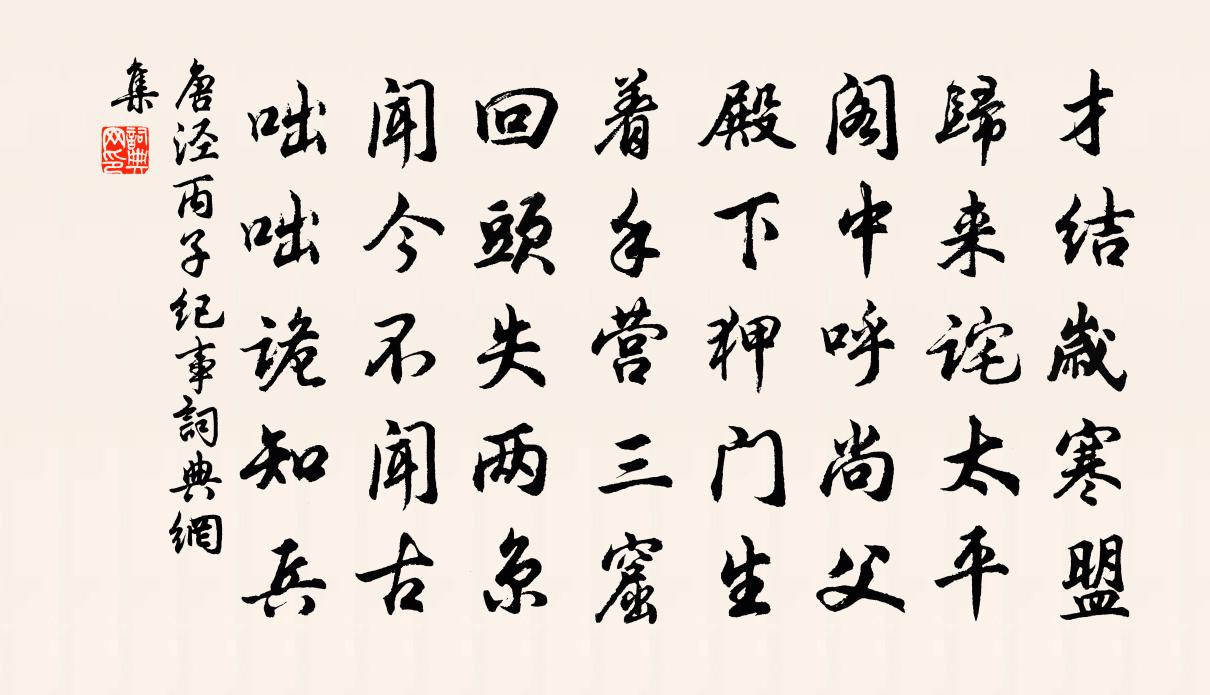 才结歳寒盟
歸来诧太平
阁中呼尚父
殿下狎门生
着手营三窟
回頭失两京
闻今不闻古
咄咄诡知兵
唐泾丙子纪事詞典網
集
詞典
网印